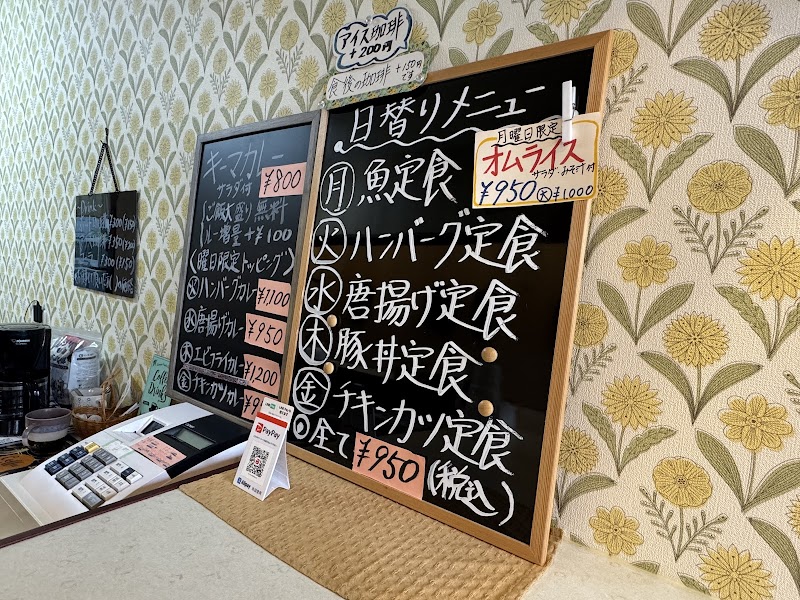 アイス珈琲
+200円
食後の珈琲 +150円
です
日替りメニュー
月 魚定食
火 ハンバーグ定食
水 唐揚げ定食
木 豚丼定食
金 チキンカツ定食
◎全て ¥950 (税込)
月曜日限定
オムライス
サラダ・みそ汁付
¥950 大 ¥1,000
キーマカレー
サラダ付 ¥800
(ご飯大盛り無料
ルー増量+¥100
(曜日限定トッピング)
火 ハンバーグカレー ¥1,100
水 唐揚げカレー ¥950
木 エビフライカレー ¥1,200
金 チキンカツカレー
Drink
PayPay